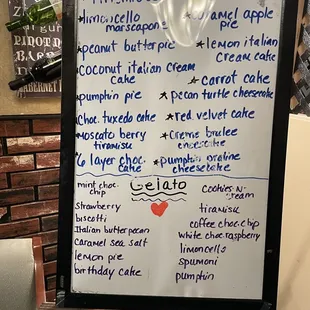 PINOT N
CABERNET
*limoncello marscapone
*caramel apple pie
*peanut butter pie
*lemon italian cream cake
coconut italian cream cake
*carrot cake
*pumpkin pie
*pecan turtle cheesecake
choc. tuxedo cake
*red velvet cake
*moscato berry tiramisu
*creme brulee cheesecake
6 layer choc. cake
*pumpkin praline cheesecake
Gelato
mint choc. chip
cookies-n-cream
strawberry
tiramisu
biscotti
coffee choc. chip
Italian butter pecan
white choc. raspberry
caramel sea salt
limoncello
lemon pie
spumoni
birthday cake
pumpkin